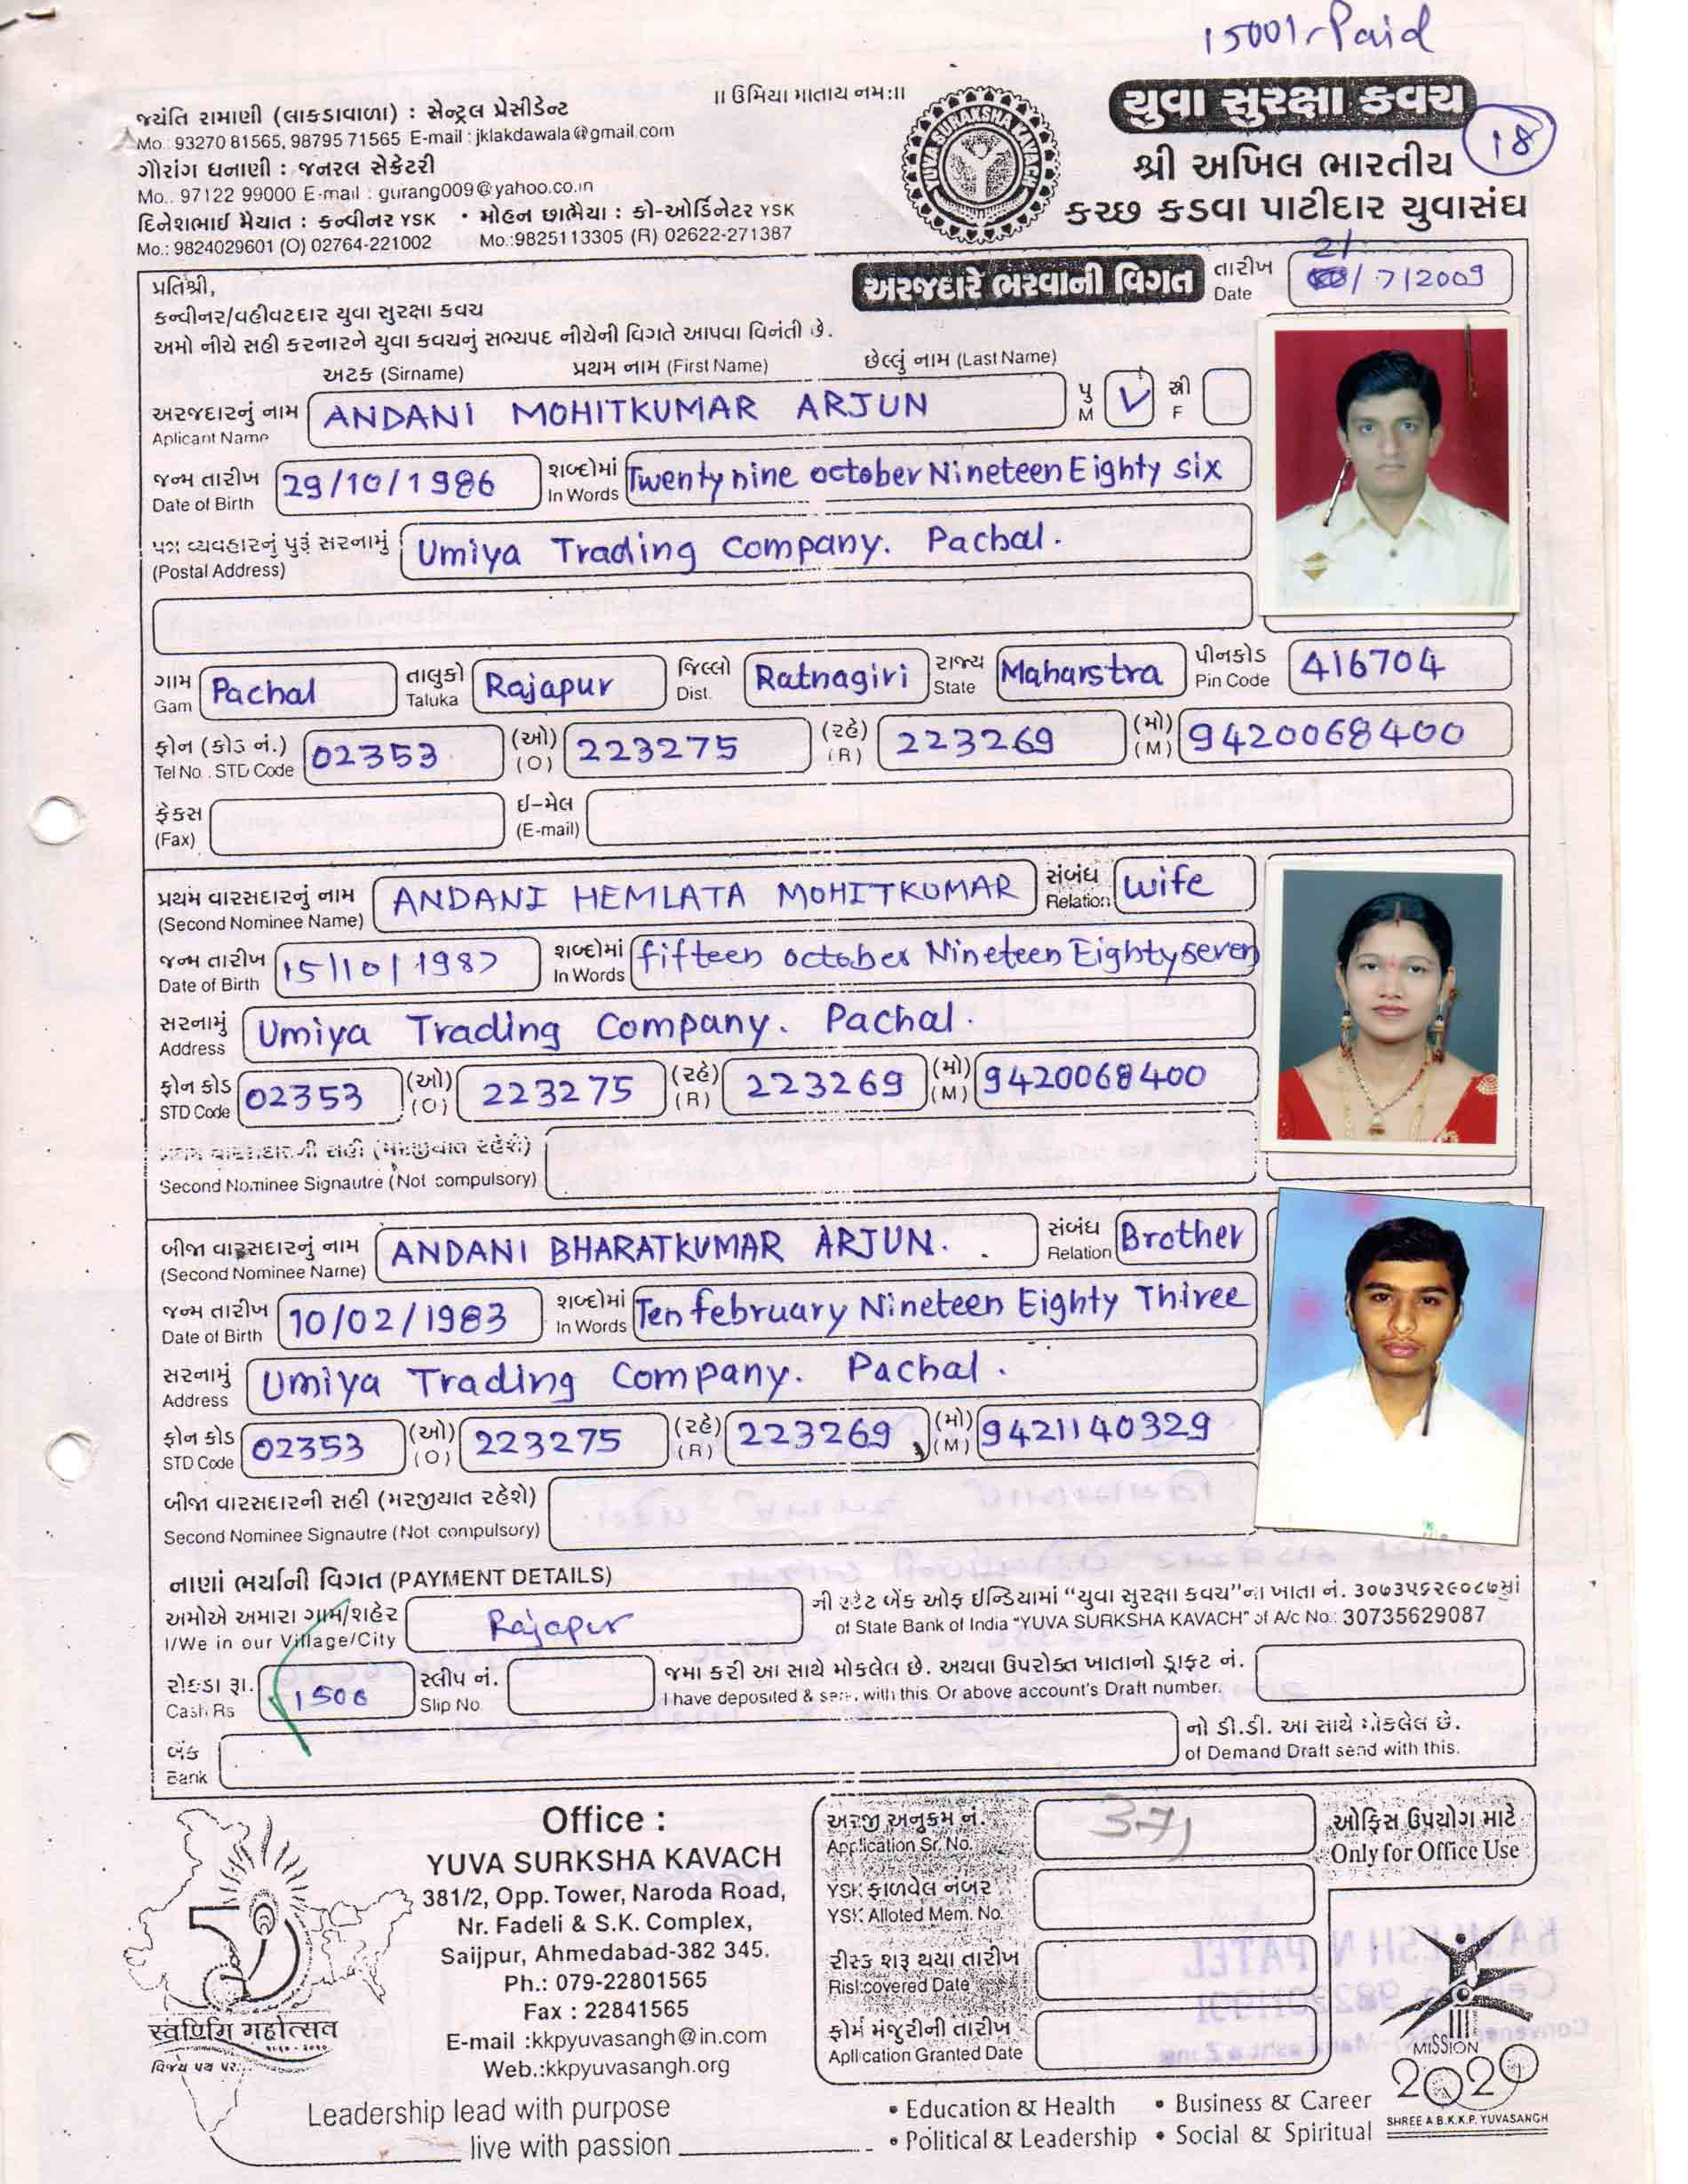 1500/- Paid
॥ ઉમિયા માતાય નમઃ॥
જયંતિ રામાણી (લાકડાવાળા) : સેન્ટ્રલ પ્રેસીડેન્ટ
Mo. 93270 81565, 98795 71565 E-mail : jklakdawala@gmail.com
ગૌરાંગ ધનાણી : જનરલ સેક્રેટરી
Mo.. 97122 99000 E-mail : gurang009@yahoo.co.in
દિનેશભાઈ મૈયાત : કન્વીનર YSK • મોહન છાભૈયા : કો-ઓર્ડિનેટર YSK
Mo.: 9824029601 (O) 02764-221002 Mo.:9825113305 (R) 02622-271387
YUVA SURAKSHA KAVACH
યુવા સુરક્ષા કવચ
18
શ્રી અખિલ ભારતીય
કચ્છ કડવા પાટીદાર યુવાસંઘ
અરજદારે ભરવાની વિગત
તારીખ Date 21/7/2009
પ્રતિશ્રી,
કન્વીનર/વહીવટદાર યુવા સુરક્ષા કવચ
અમો નીચે સહી કરનારને યુવા કવચનું સભ્યપદ નીચેની વિગતે આપવા વિનંતી છે.
અટક (Sirname) પ્રથમ નામ (First Name) છેલ્લું નામ (Last Name)
અરજદારનું નામ Aplicant Name ANDANI MOHITKUMAR ARJUN પુ M ✓ સ્ત્રી F
જન્મ તારીખ Date of Birth 29/10/1986 શબ્દોમાં In Words Twenty nine october Nineteen Eighty six
પત્ર વ્યવહારનું પુરૂં સરનામું (Postal Address) Umiya Trading Company. Pachal.
ગામ Gam Pachal તાલુકો Taluka Rajapur જિલ્લો Dist. Ratnagiri રાજ્ય State Maharstra પીનકોડ Pin Code 416704
ફોન (કોડ નં.) Tel No. STD Code 02353 (ઓ) (O) 223275 (રહે) (R) 223269 (મો) (M) 9420068400
ફેક્સ (Fax) ઈ-મેલ (E-mail)
પ્રથમ વારસદારનું નામ (Second Nominee Name) ANDANI HEMLATA MOHITKUMAR સંબંધ Relation wife
જન્મ તારીખ Date of Birth 15/10/1987 શબ્દોમાં In Words fifteen october Nineteen Eighty seven
સરનામું Address Umiya Trading Company. Pachal.
ફોન કોડ STD Code 02353 (ઓ) (O) 223275 (રહે) (R) 223269 (મો) (M) 9420068400
વારસદારની સહી (મરજીયાત રહેશે)
Second Nominee Signautre (Not compulsory)
બીજા વારસદારનું નામ (Second Nominee Name) ANDANI BHARATKUMAR ARJUN. સંબંધ Relation Brother
જન્મ તારીખ Date of Birth 10/02/1983 શબ્દોમાં In Words Ten february Nineteen Eighty Thiree
સરનામું Address Umiya Trading Company. Pachal.
ફોન કોડ STD Code 02353 (ઓ) (O) 223275 (રહે) (R) 223269 (મો) (M) 9421140329
બીજા વારસદારની સહી (મરજીયાત રહેશે)
Second Nominee Signautre (Not compulsory)
નાણાં ભર્યાની વિગત (PAYMENT DETAILS)
અમોએ અમારા ગામ/શહેર I/We in our Village/City Rajapur ની સ્ટેટ બેંક ઓફ ઈન્ડિયામાં “યુવા સુરક્ષા કવચ”ના ખાતા નં. ૩૦૭૩૫૬૨૯૦૮૭માં
of State Bank of India “YUVA SURKSHA KAVACH” of A/c No.: 30735629087
રોકડા રૂા. Cash Rs 1500 સ્લીપ નં. Slip No. જમા કરી આ સાથે મોકલેલ છે. અથવા ઉપરોક્ત ખાતાનો ડ્રાફ્ટ નં.
I have deposited & sent, with this. Or above account's Draft number.
બેંક Bank નો ડી.ડી. આ સાથે મોકલેલ છે.
of Demand Draft send with this.
Office :
YUVA SURKSHA KAVACH
381/2, Opp. Tower, Naroda Road,
Nr. Fadeli & S.K. Complex,
Saijpur, Ahmedabad-382 345.
Ph.: 079-22801565
Fax : 22841565
E-mail :kkpyuvasangh@in.com
Web.:kkpyuvasangh.org
અરજી અનુક્રમ નં. Application Sr. No. 371
YSK ફાળવેલ નંબર YSK Alloted Mem. No.
રીસ્ક શરૂ થયા તારીખ Risk covered Date
ફોર્મ મંજુરીની તારીખ Apllication Granted Date
ઓફિસ ઉપયોગ માટે
Only for Office Use
50
स्वर्णिम महोत्सव
વિજય પથ પર...
Leadership lead with purpose
live with passion
• Education & Health • Business & Career
• Political & Leadership • Social & Spiritual
MISSION
2020
SHREE A.B.K.K.P. YUVASANGH